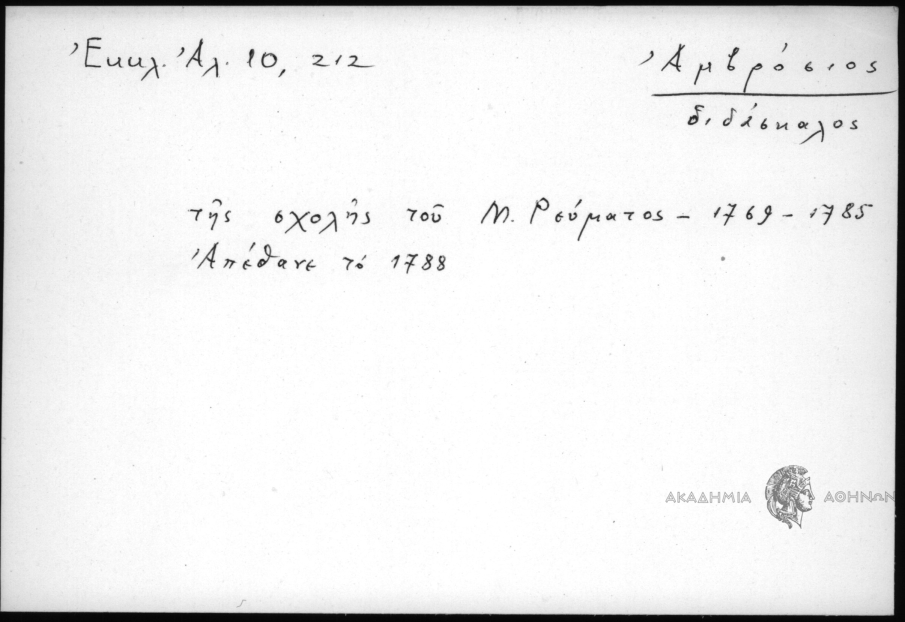 Ἐκκλ. Ἀλ. 10, 212
Ἀμβρόσιος
διδάσκαλος
τῆς σχολῆς τοῦ Μ. Ρεύματος – 1769 – 1785
Ἀπέθανε τό 1788
ΑΚΑΔΗΜΙΑ ΑΘΗΝΩΝ